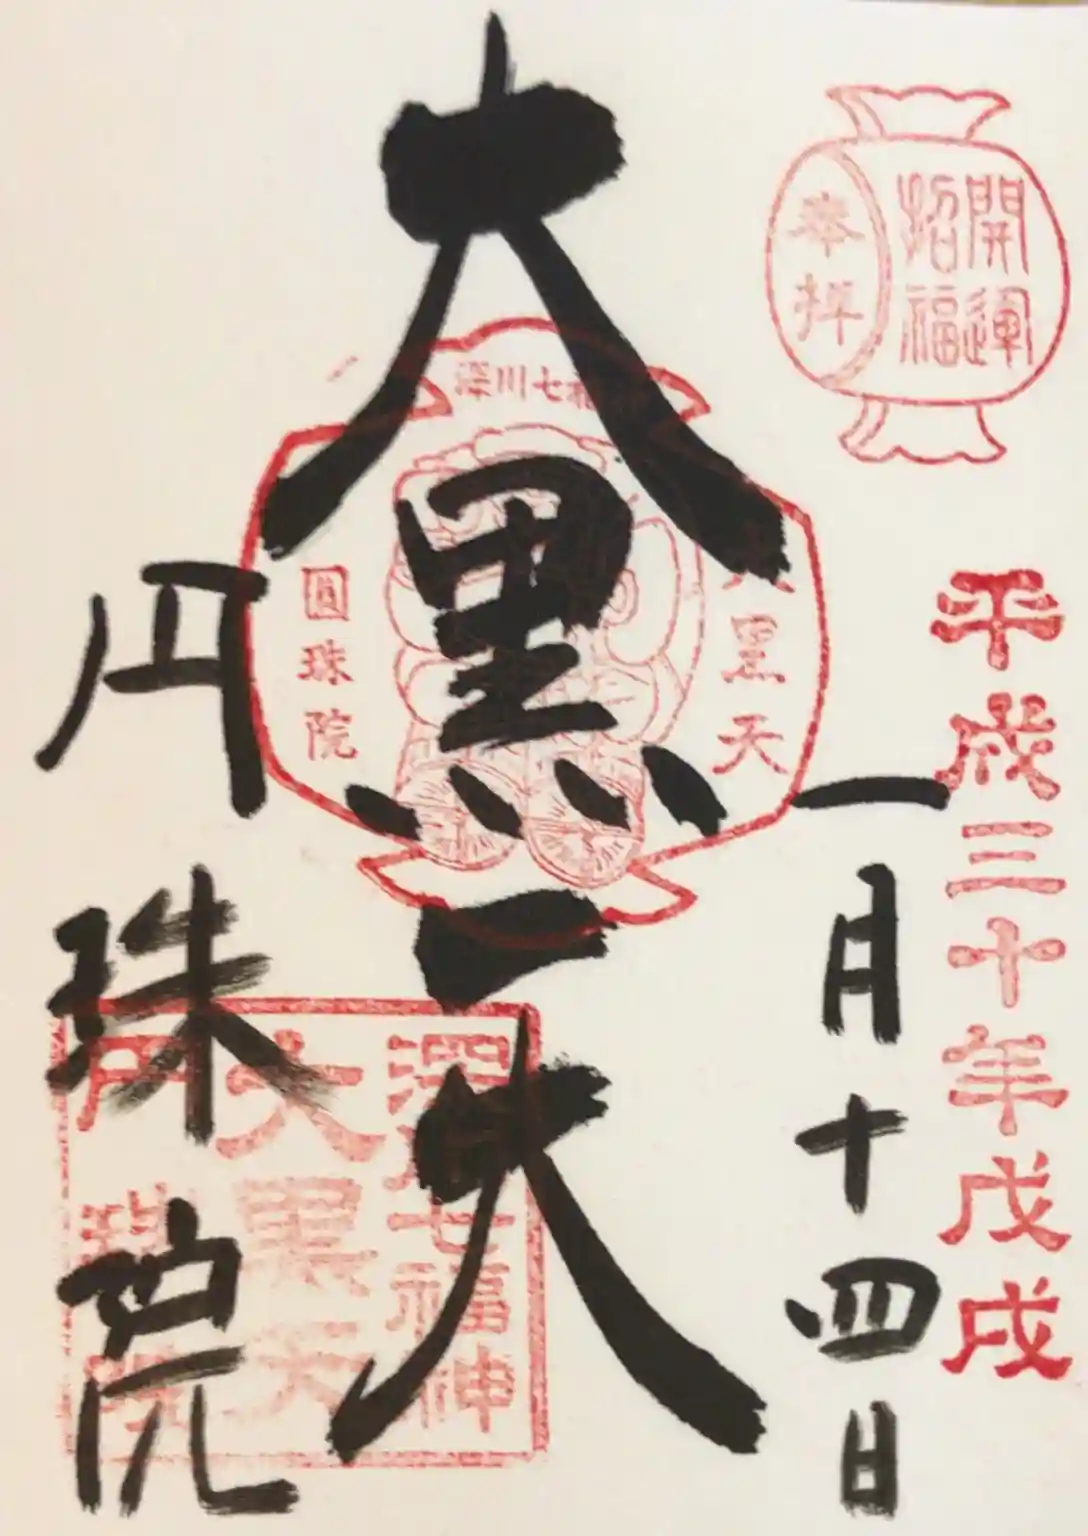 開運
招福
奉拝
平成三十年戊戌
一月十四日
深川七福神
大黒天
大黒天
圓珠院
円珠院
深川七福神
大黒天
円珠院